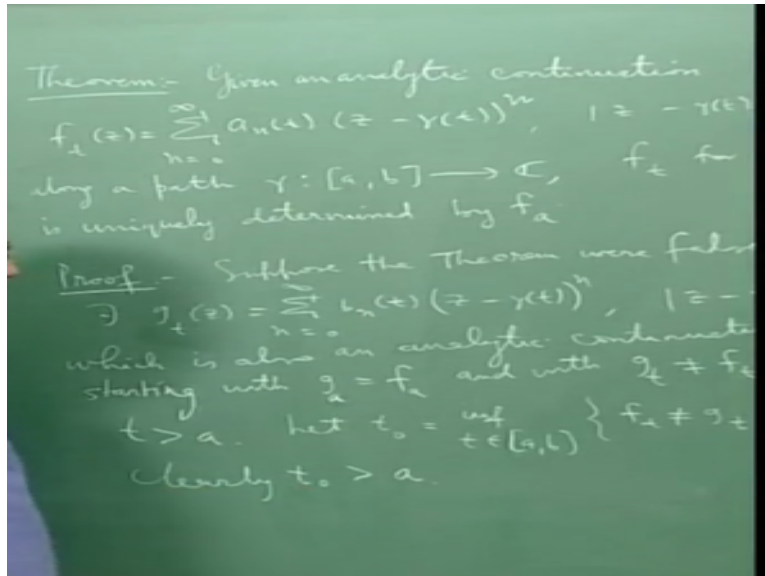 Theorem:- Given an analytic continuation
f_t(z) = ∑_{n=0}^∞ a_n(t) (z - γ(t))^n, |z - γ(t)
along a path γ : [a, b] → ℂ, f_t for
is uniquely determined by f_a
Proof:- Suppose the Theorem were false
∃ g_t(z) = ∑_{n=0}^∞ b_n(t) (z - γ(t))^n, |z -
which is also an analytic continuation
starting with g_a = f_a and with g_t ≠ f_t
t > a. Let t_0 = inf_{t ∈ [a, b]} { f_t ≠ g_t
Clearly t_0 > a.